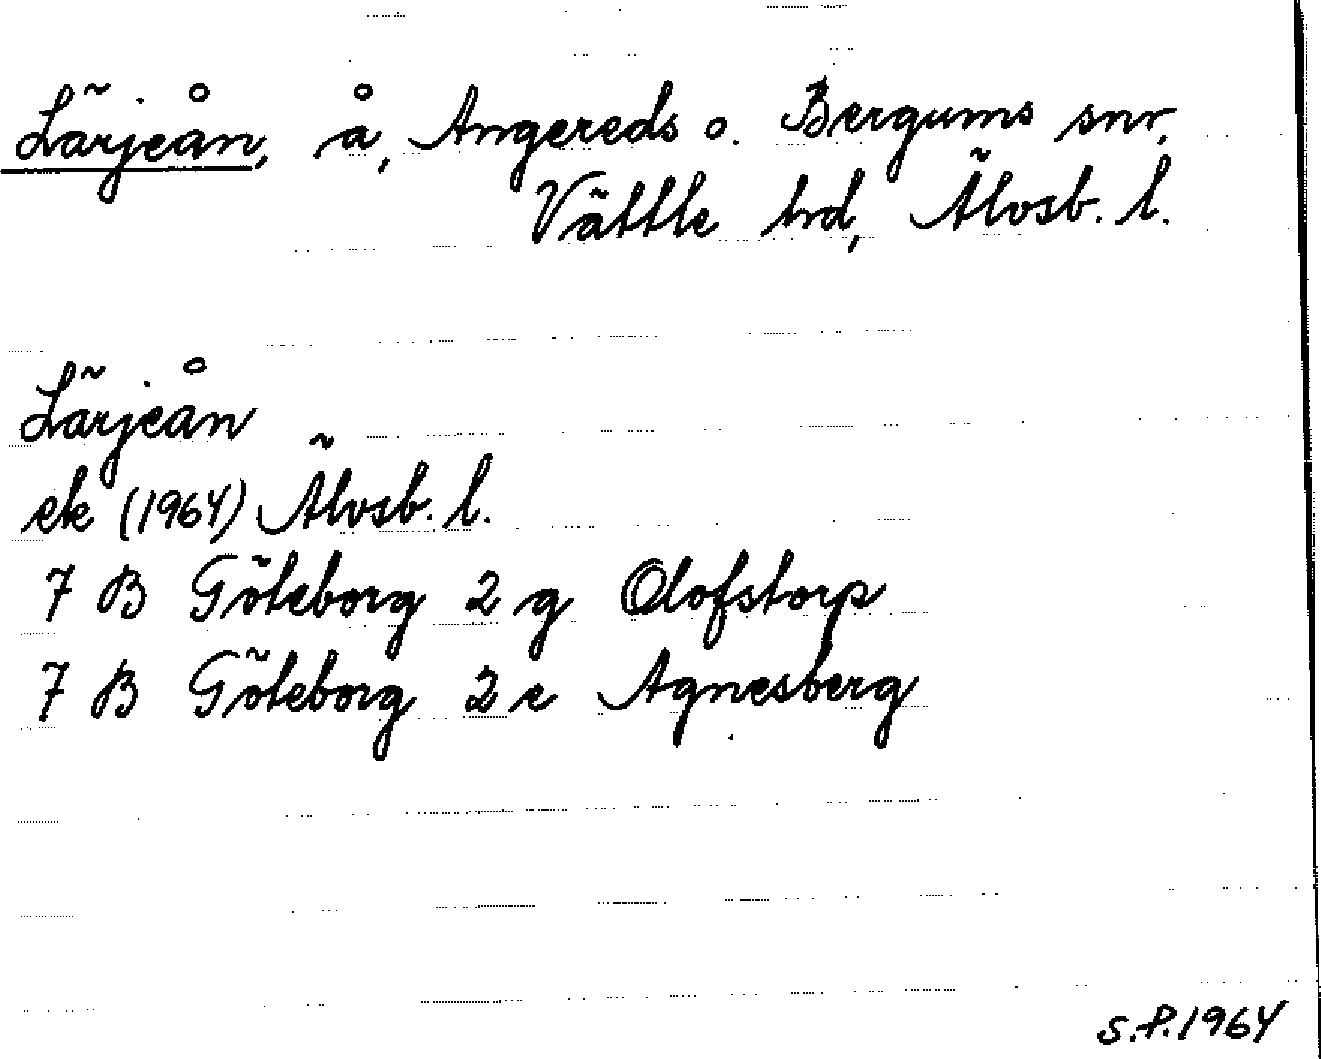 Lärjeån, å, Angereds o. Bergums snr,
Vättle hrd, Älvsb. l.
Lärjeån
ek (1964) Älvsb. l.
7 B Göteborg 2 g Olofstorp
7 B Göteborg 2 e Agnesberg
S.P.1964